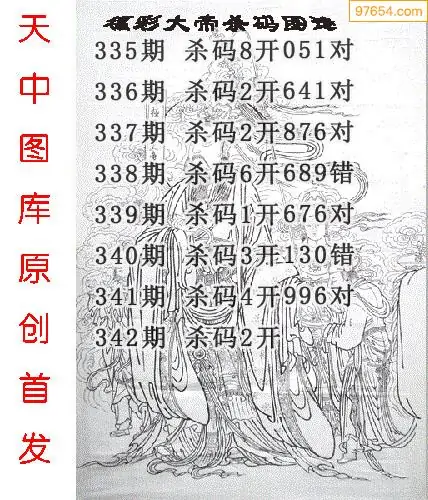 97654.com
福彩大帝杀码图谜
335期 杀码8开051对
336期 杀码2开641对
337期 杀码2开876对
338期 杀码6开689错
339期 杀码1开676对
340期 杀码3开130错
341期 杀码4开996对
342期 杀码2开
天中图库原创首发